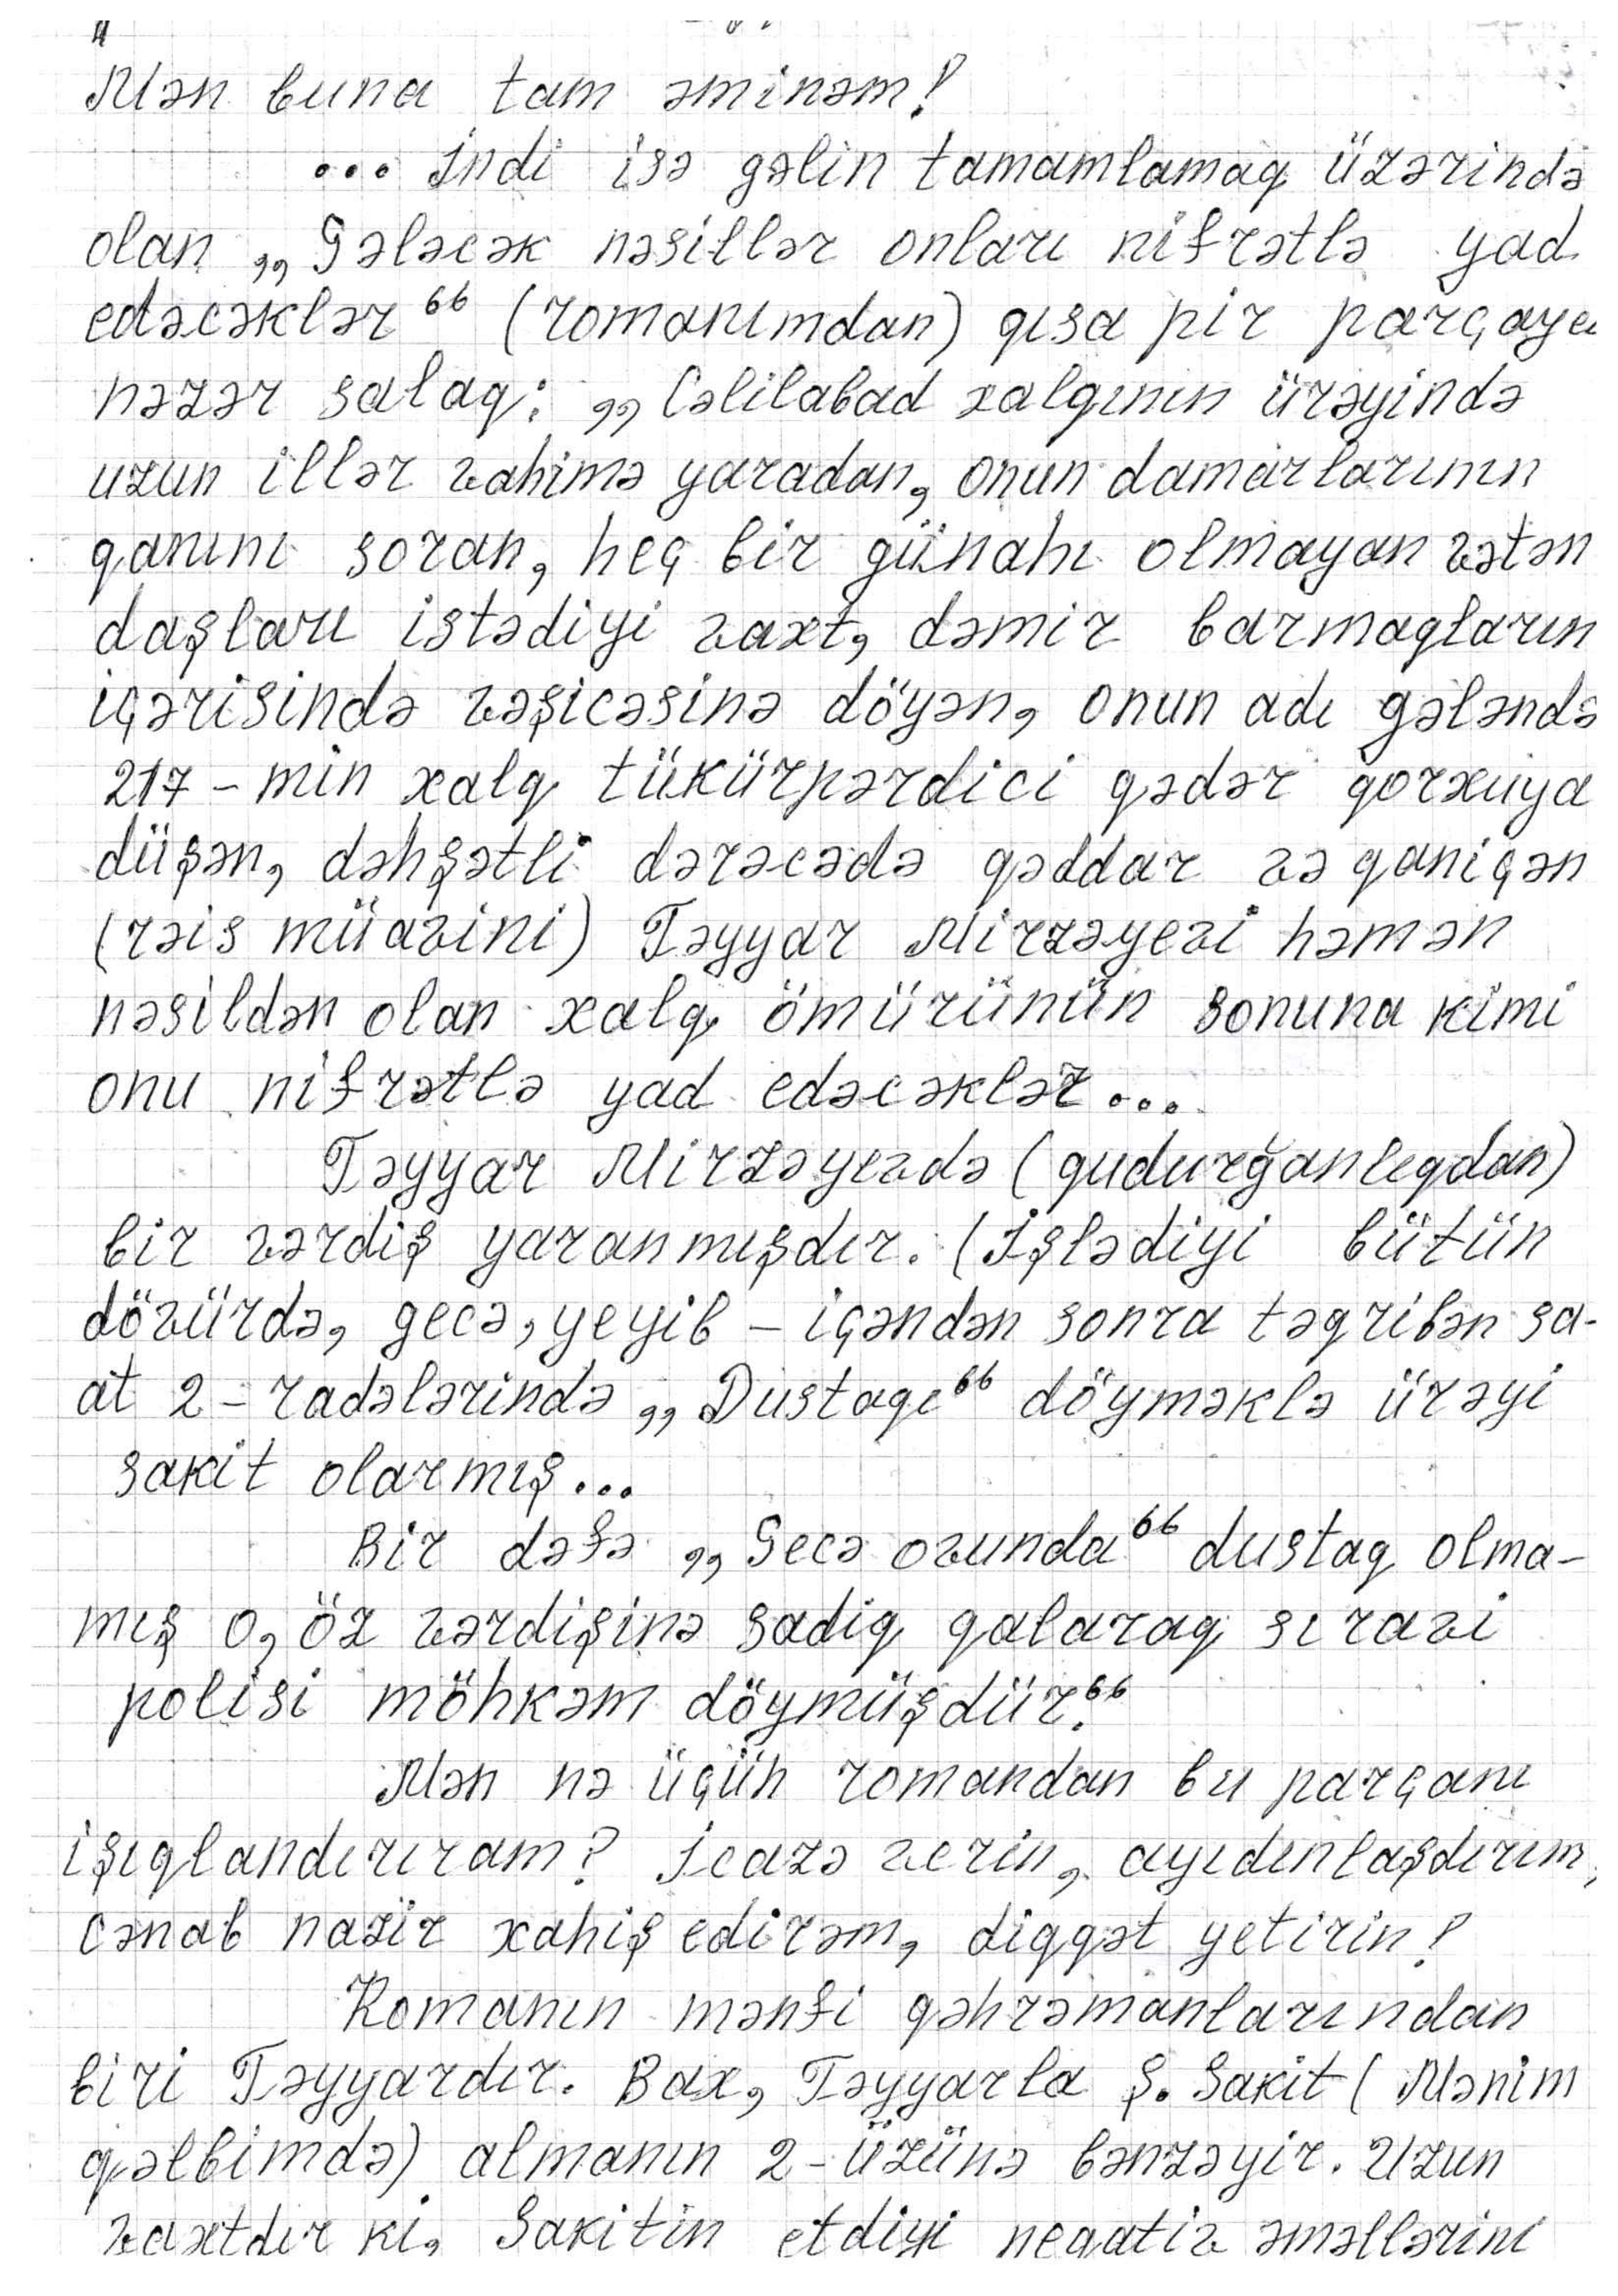 Mən buna tam əminəm!
... İndi isə gəlin tamamlamaq üzərində
olan „Gələcək nəsillər onları nifrətlə yad
edəcəklər“ (romanımdan) qısa pir parçaya
nəzər salaq: „Cəlilabad xalqının ürəyində
uzun illər vahimə yaradan, onun damarlarının
qanını soran, heç bir günahı olmayan vətən
daşları istədiyi vaxt, dəmir barmaqların
içərisində vəşicəsinə döyən, onun adı gələndə
217-min xalq tükürpərdici qədər qorxuya
düşən, dəhşətli dərəcədə qəddar və qaniçən
(rəis müavini) Təyyar Mirzəyevi həmən
nəsildən olan xalq ömürünün sonuna kimi
onu nifrətlə yad edəcəklər...
Təyyar Mirzəyevdə (qudurğanlıqdan)
bir vərdiş yaranmışdır. (İşlədiyi bütün
dövürdə, gecə, yeyib – içəndən sonra təqribən sa-
at 2-radələrində „Dustaqı“ döyməklə ürəyi
sakit olarmış...
Bir dəfə „Gecə ovunda“ dustaq olma-
mış o, öz vərdişinə sadiq qalaraq sıravi
polisi möhkəm döymüşdür.“
Mən nə üçün romandan bu parçanı
işıqlandırıram? İcazə verin, ayıdınlaşdırım,
cənab nazir xahiş edirəm, diqqət yetirin!
Romanın mənfi qəhrəmanlarından
biri Təyyardır. Bax, Təyyarla Ş. Sakit (Mənim
qəlbimdə) almanın 2-üzünə bənzəyir. Uzun
vaxtdır ki, Sakitin etdiyi neqativ əməllərini